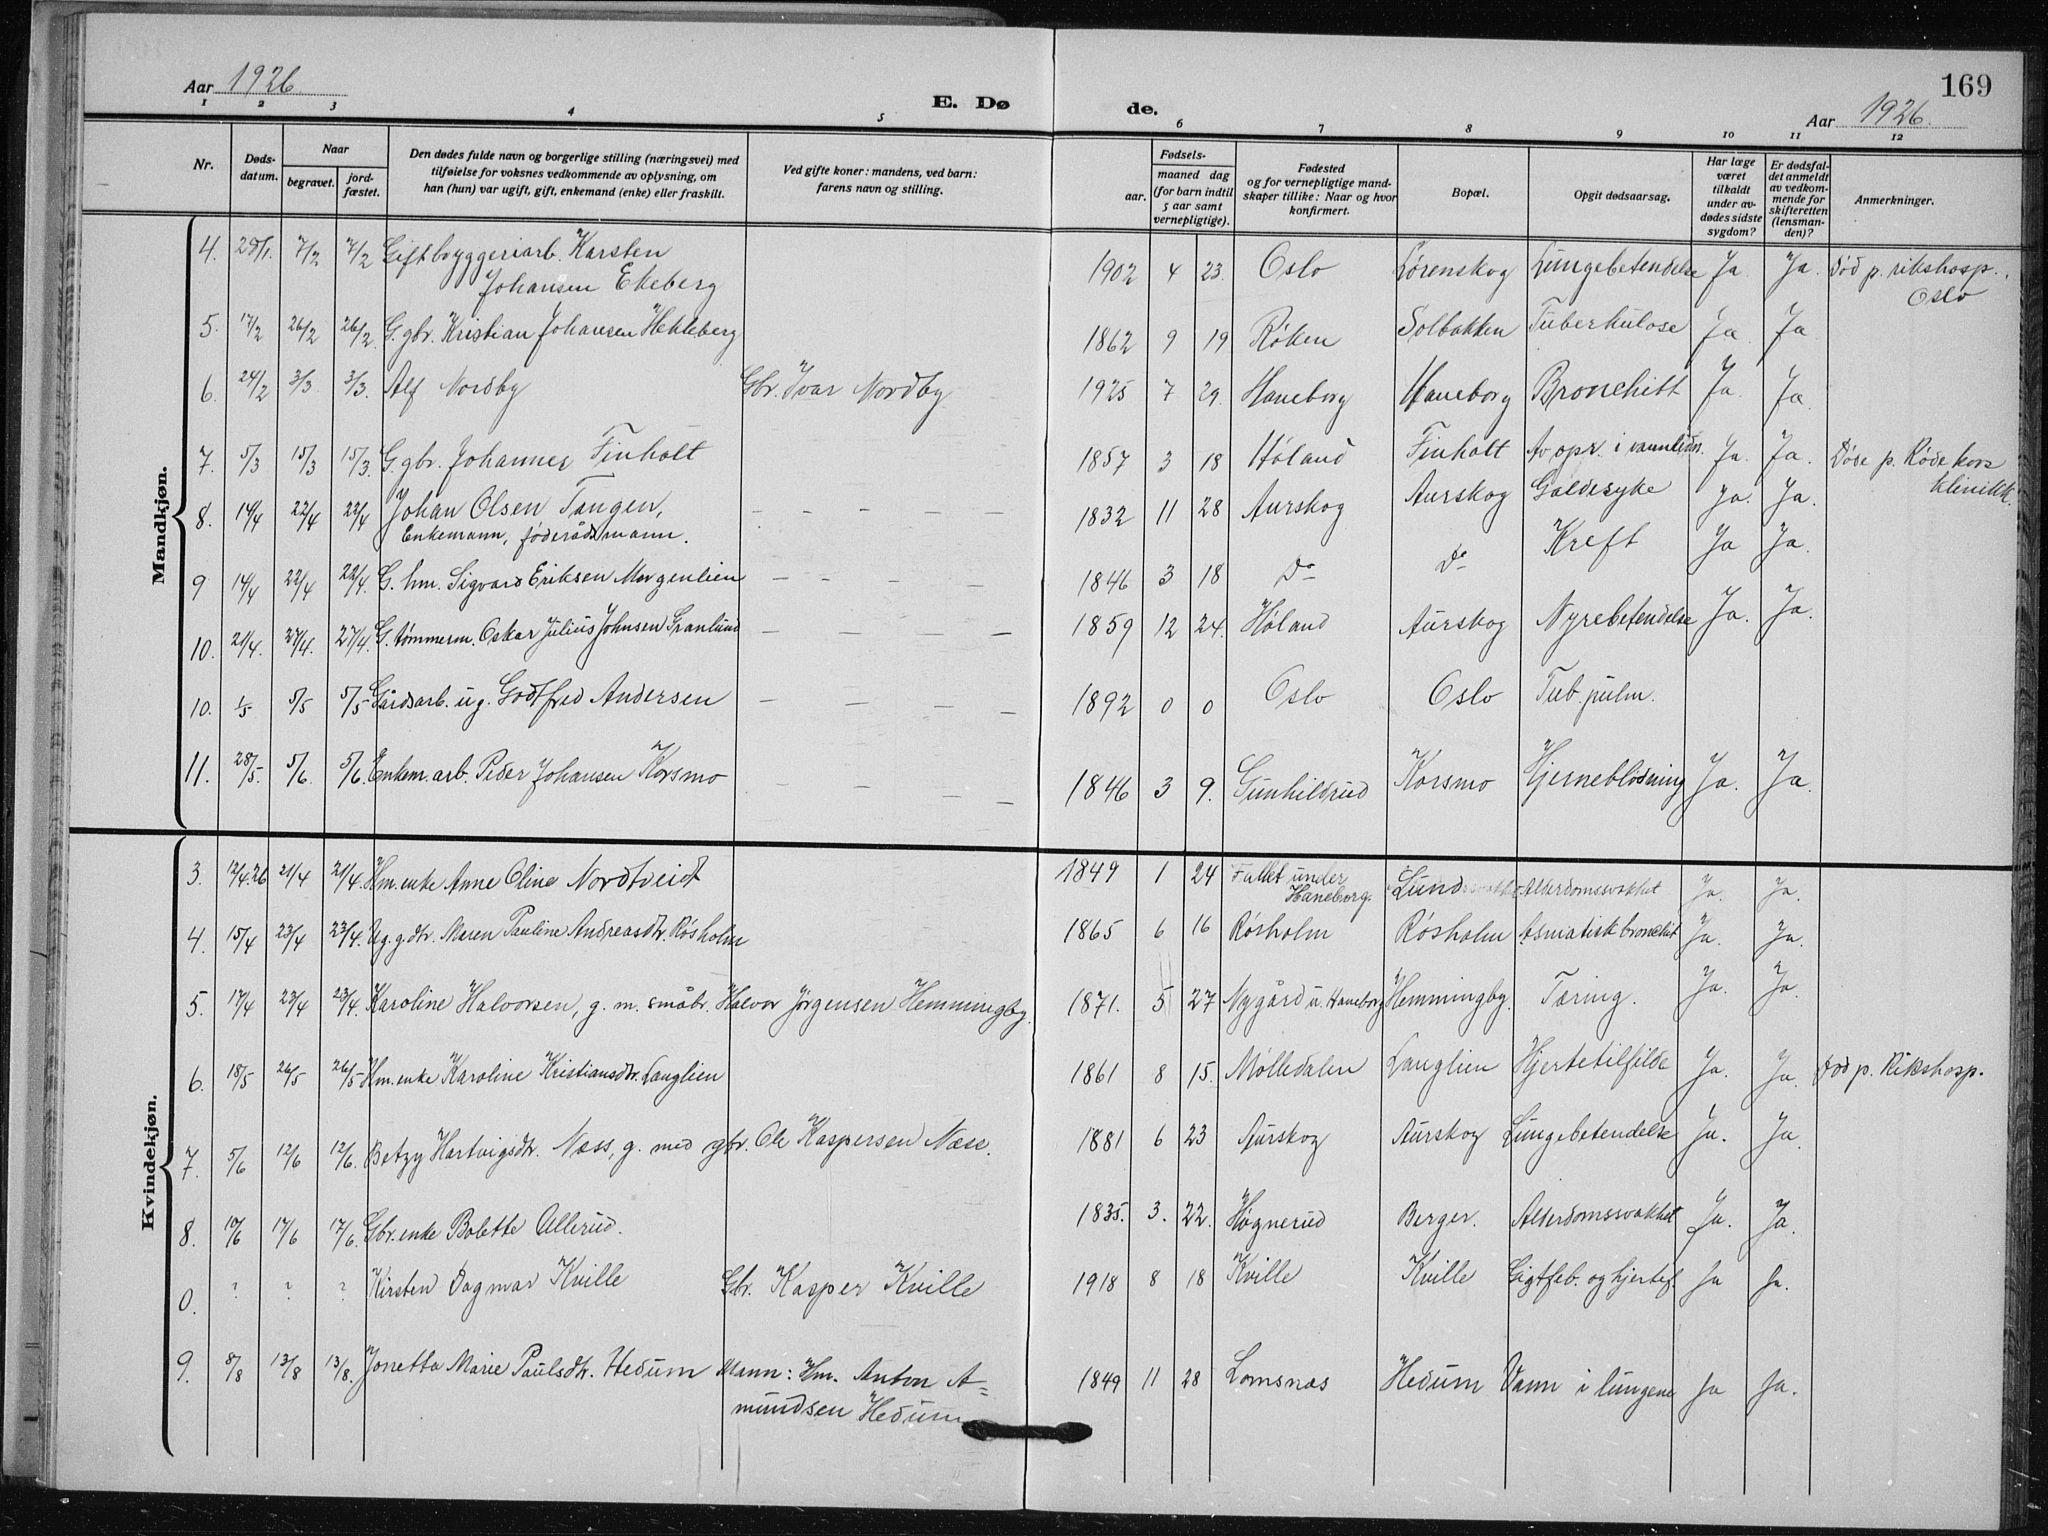 Aar 1926
E. Døde.
Aar 1926.
169
1 2 3 4 5 6 7 8 9 10 11 12
Nr.
Døds-datum.
Naar
begravet.
jord-fæstet.
Den dødes fulde navn og borgerlige stilling (næringsvei) med
tilføielse for voksnes vedkommende av oplysning, om
han (hun) var ugift, gift, enkemand (enke) eller fraskilt.
Ved gifte koner: mandens, ved barn:
farens navn og stilling.
Fødsels-
aar.
maaned dag
(for barn indtil
5 aar samt
vernepligtige).
Fødested
og for vernepligtige mand-
skaper tillike: Naar og hvor
konfirmert.
Bopæl.
Opgit dødsaarsag.
Har læge
været
tilkaldt
under av-
dødes sidste
sygdom?
Er dødsfal-
det anmeldt
av vedkom-
mende for
skifteretten
(lensman-
den)?
Anmerkninger.
Mandkjøn.
4. 28/1. 7/2 7/2 Gift byggeriarb. Karsten Johansen Ekeberg 1902 4 23. Oslo Lørenskog Lungebetendelse Ja. Ja. Død p. rikshosp. Oslo
5. 17/2 26/2 26/2 G. gbr. Kristian Johansen Hekleberg 1862 9 19 Røken Solbakken Tuberkulose Ja Ja
6. 24/2 3/3 3/3. Alf Nordby Gbr. Ivar Nordby 1925 7 29. Haneborg Haneborg Bronchitt Ja. Ja.
7. 5/3 15/3 15/3. G. gbr. Johannes Finholt 1857 3 18 Høland Finholt Av opr. i vannledn. Ja. Ja. Døde p. Røde kors klinikk.
8. 14/4 22/4 22/4 Johan Olsen Tangen, Enkemann, føderådsmann. 1832 11 28 Aurskog Aurskog Galdesyke Ja. Ja.
9 14/4 22/4 22/4. G. hm. Sigvard Eriksen Morgenlien 1846 3 18 Do Do Kreft Ja Ja.
10. 21/4. 27/4. 27/4. G. tømmerm. Oskar Julius Johnsen Granlund 1859 12 24. Høland Aurskog Nyrebetendelse Ja. Ja.
10. 1/5 5/5 5/5 Gårdsarb. ug. Godtfred Andersen 1892 0 0 Oslo Oslo Tub. pulm.
11. 28/5. 5/6. 5/6. Enkem. arb. Peder Johansen Korsmo 1846 3 9. Gunhildrud Korsmo Hjerneblødning Ja. Ja.
Kvindekjøn.
3. 12/4.26 21/4 21/4. Hm. enke Anne Oline Nordtveit 1849 1 24 Fallet under Haneborg. Lund Alderdomssvakhet Ja. Ja.
4. 15/4 23/4 23/4. Ug. g.dtr. Maren Pauline Andreasdtr. Røsholm 1865 6 16 Røsholm Røsholm Asmatisk bronchit Ja. Ja.
5. 17/4 23/4 23/4. Karoline Halvorsen, g. m. småbr. Halvor Jørgensen Hemmingby. 1871. 5 27 Nygård u. Haneborg Hemmingby. Tæring. Ja. Ja.
6. 18/5 26/5 26/5 Hm. enke Karoline Kristiansdtr. Langlien 1861 8 15. Mølledalen Langlien Hjertetilfelde Ja. Ja. Død p. Rikshosp.
7. 5/6 12/6 12/6. Betzy Hartvigsdtr. Næss, g. med gbr. Ole Kaspersen Næss. 1881 6 23 Aurskog Aurskog Lungebetendelse Ja. Ja.
8. 10/6 17/6 17/6. Gbr. enke Bolette Ollerud. 1835. 3. 22. Høgnerud Berger. Alderdomssvakhet Ja. Ja.
0. ? ? ? Kirsten Dagmar Kville Gbr. Kasper Kville 1918 8 18 Kville Kville Gigtfeb. og hjertef. Ja Ja.
9. 8/8 13/8 13/8. Jonetta Marie Paulsdtr. Hedum Mann: Hm. Anton A=mundsen Hedum 1849 11 28 Lomsnæs Hedum Vann i lungene Ja Ja.